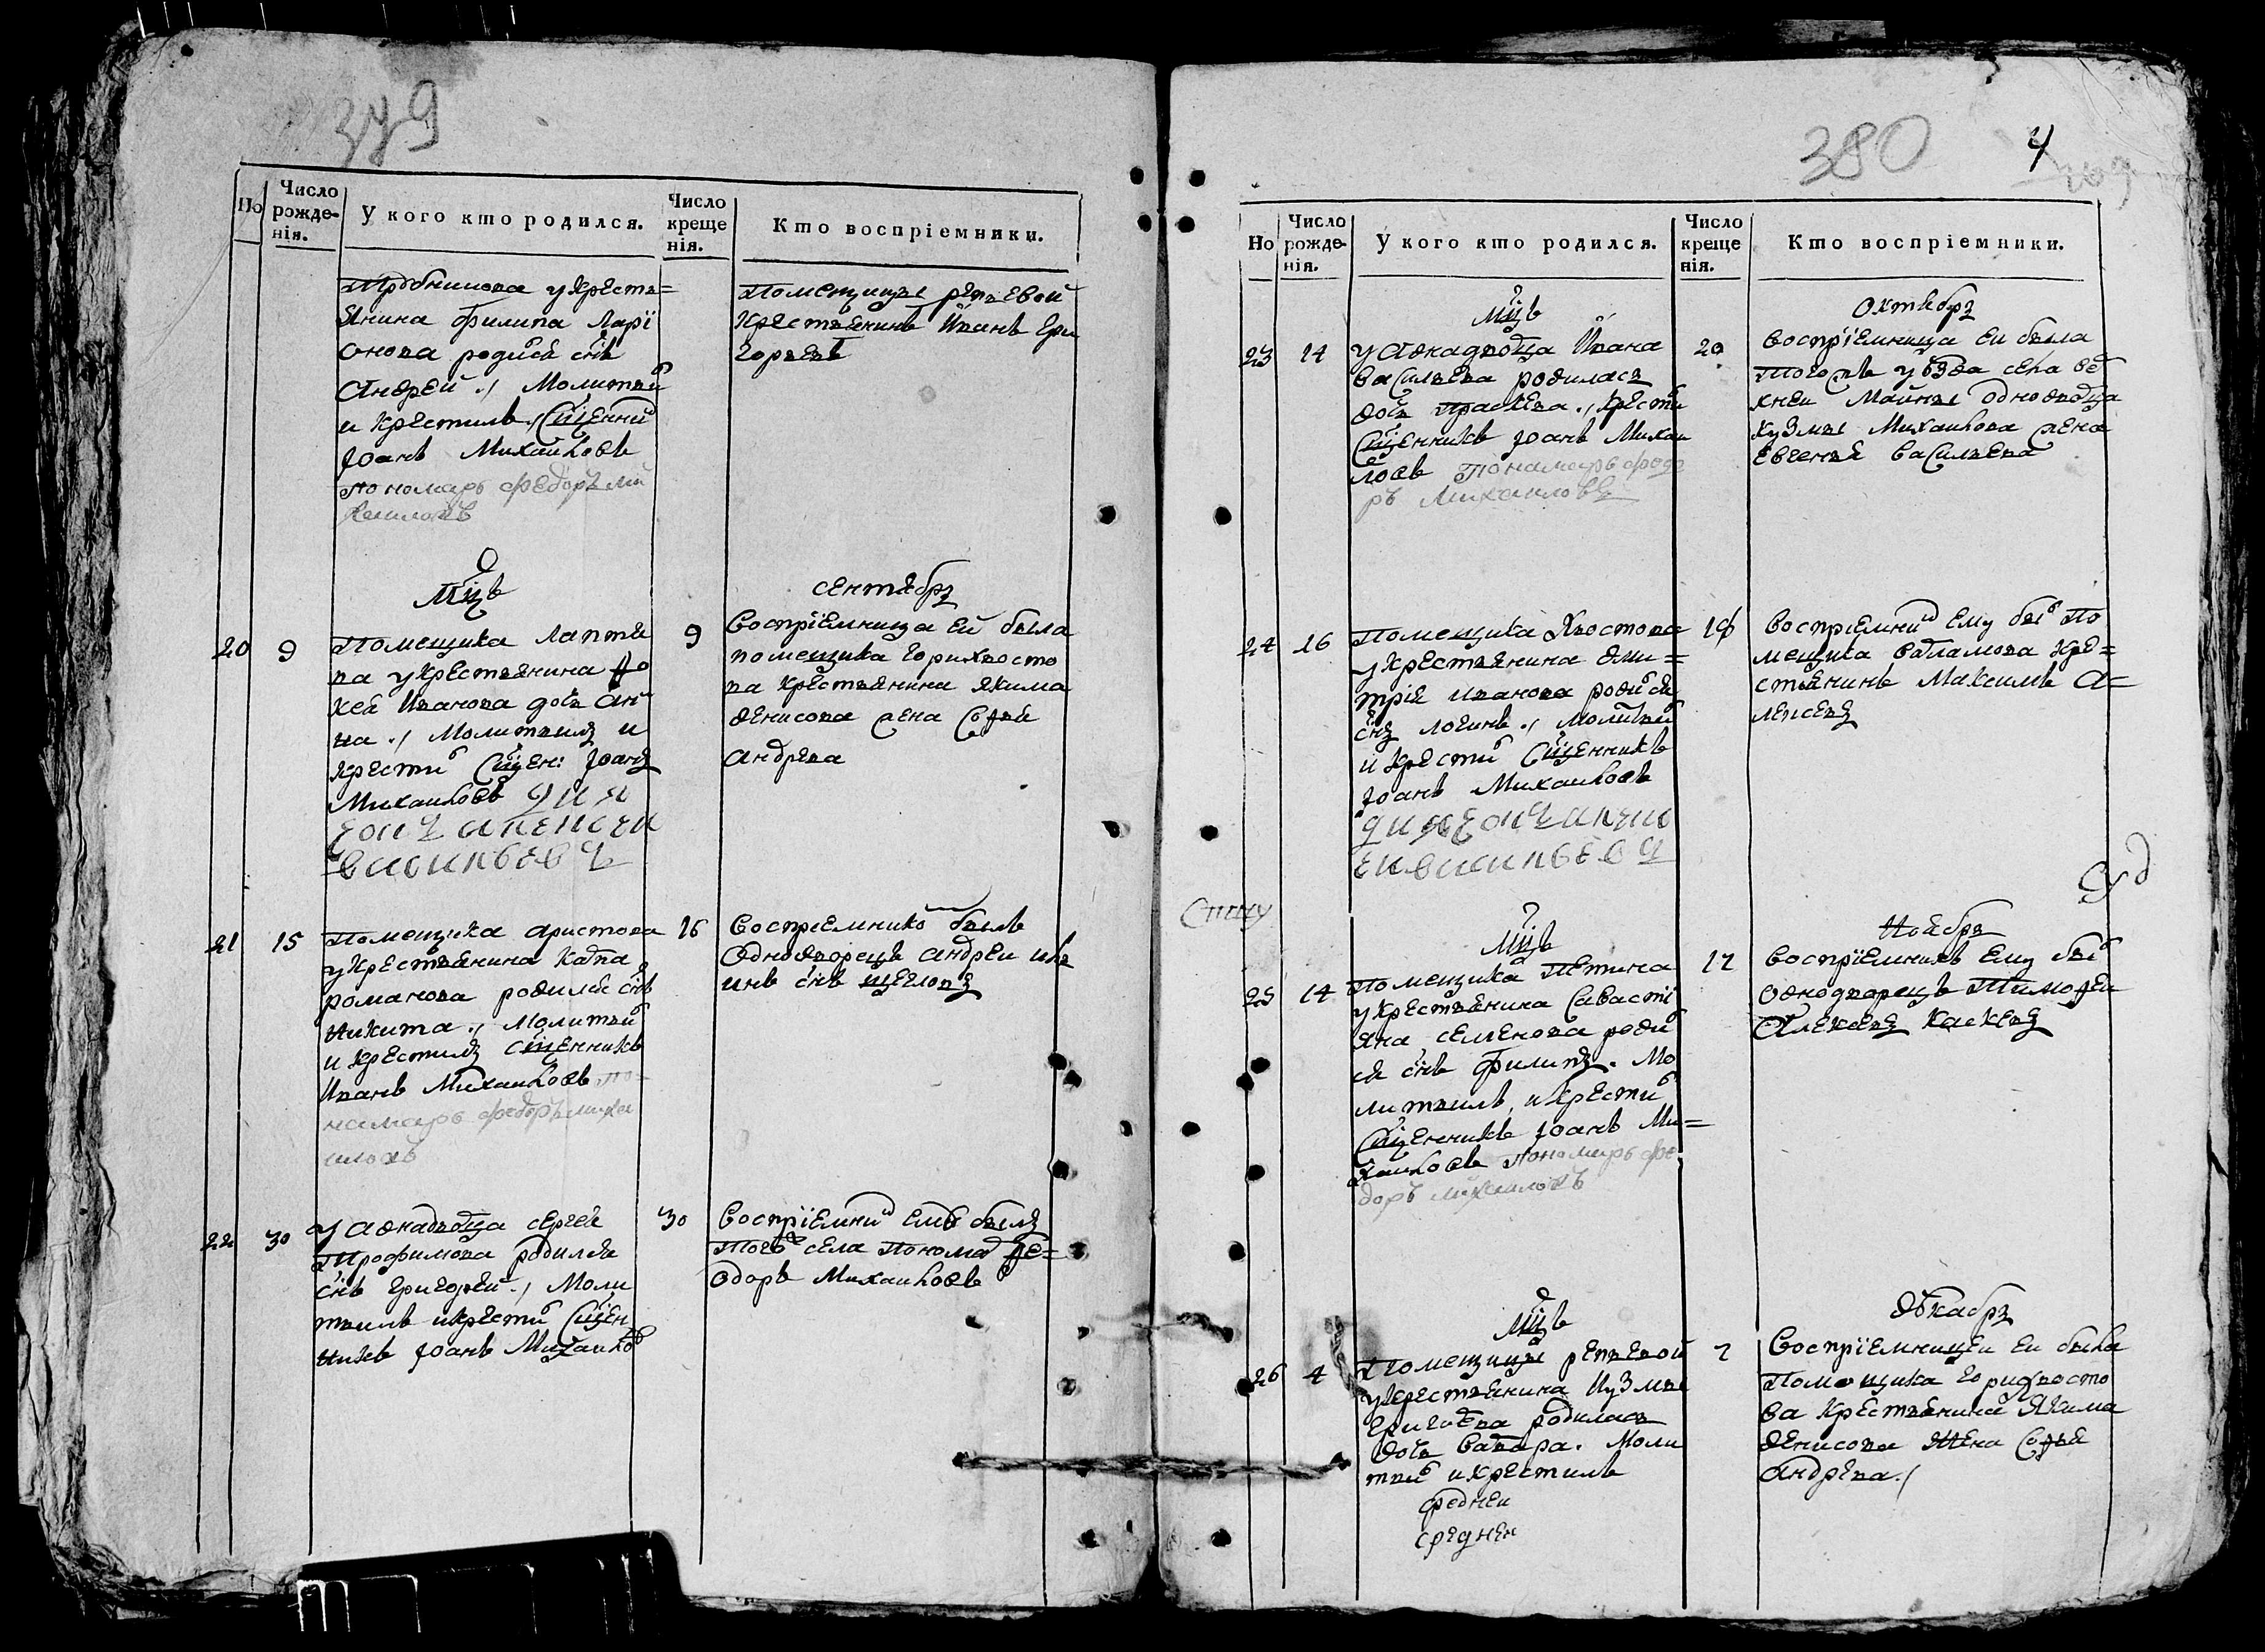 379
Но
Число рожде- нія.
У кого кто родился.
Число креще нія.
Кто воспріемники.
у крестъ=
янина филипа Ларї
онова родиᲂся снъ
Андрей ./ Молитвиᲂ
и крестилъ ./ Сщенниᲂ
Їоанъ Михаиловъ
пономарь федоръ ми
хаиловъ
Помещицы репьевой
крестьянинъ Иванъ Гри
горьевъ
Мцъ
сентябрь
20
9
Помещика Лаптѣ
ва у крестьянина Ѳо
кея Иванова дочь Ан
на ./ Молитвилъ и
крестиᲂ Сщен: Їоанъ
Михаиловъ дия
конъ алексеи
василъевъ
9
Воспрїемница ей была
помещика Горихвосто
ва крестьянина Якима
Денисова жена Софья
Андрева
21
15
Помещика Аристова
у крестьянина Карпа
романова родился снъ
Никита ./ Молитвиᲂ
и крестилъ сщенникъ
Иванъ Михаиловъ по=
намарь федоръ миха
иловъ
16
Воспрїемникоᲂ былъ
Однодворецъ Андреи Иль
инъ снъ щегловъ
22
30
У Аднадворца сергея
Трофимова родился
снъ Григорей ./ Моли
твилъ и крестиᲂ Сщен
никъ Їоанъ Михаилоᲂ
30
Воспрїемниᲂ емᲂ былъ
Тогоᲂ села Пономарь Ѳе=
одоръ Михаиловъ
380
4
269
Но
Число рожде- нія.
У кого кто родился.
Число креще нія.
Кто воспріемники.
Мцъ
Октябрь
23
14
у Аднадворца Ивана
Васильева родилась
дочь Прасковья ./ Крестиᲂ
Сщенникъ Їоанъ Михаи
ловъ Понамарь федо
ръ Михаиловъ
20
Воспрїемница еи была
Тогожъ уѣзда села Вер
хнеи Майны Однодворца
Кузмы Михаилова жена
Евгенья Васильева
24
16
Помещика Хвостова
у крестьянина Дми=
трїя Иванова родиᲂся
снъ логинъ ./ Молитвиᲂ
и крестиᲂ Сщенникъ
Їоанъ Михаиловъ
дияконъ алек
еи василъевъ
Воспрїемниᲂ Ему быᲂ По
мещика Варламова кре=
стьянинъ Максимъ А=
лексевъ
Мцъ
Ноябрь
25
14
Помещика Петина
у крестьянина Савастї
яна семенова родиᲂ
ся снъ филипъ. Мо
литвилъ, и крестиᲂ
Сщенникъ Їоанъ Ми=
хаиловъ Пономарь фе
доръ михаиловъ
17
Воспрїемникъ Ему быᲂ
Однодворецъ Тимоѳеи
Алексевъ
Мцъ
дѣкабрь
26
4
Помещицы репьевой
у крестьянина Кузмы
Григорева родилась
дочь Варвара. Моли
твиᲂ и крестилъ
среднеи
среднеи
7
Воспрїемницеи еи была
Помещика Горихвосто
ва Крестьянина Якима
Денисова Жена Софья
Андрева ./